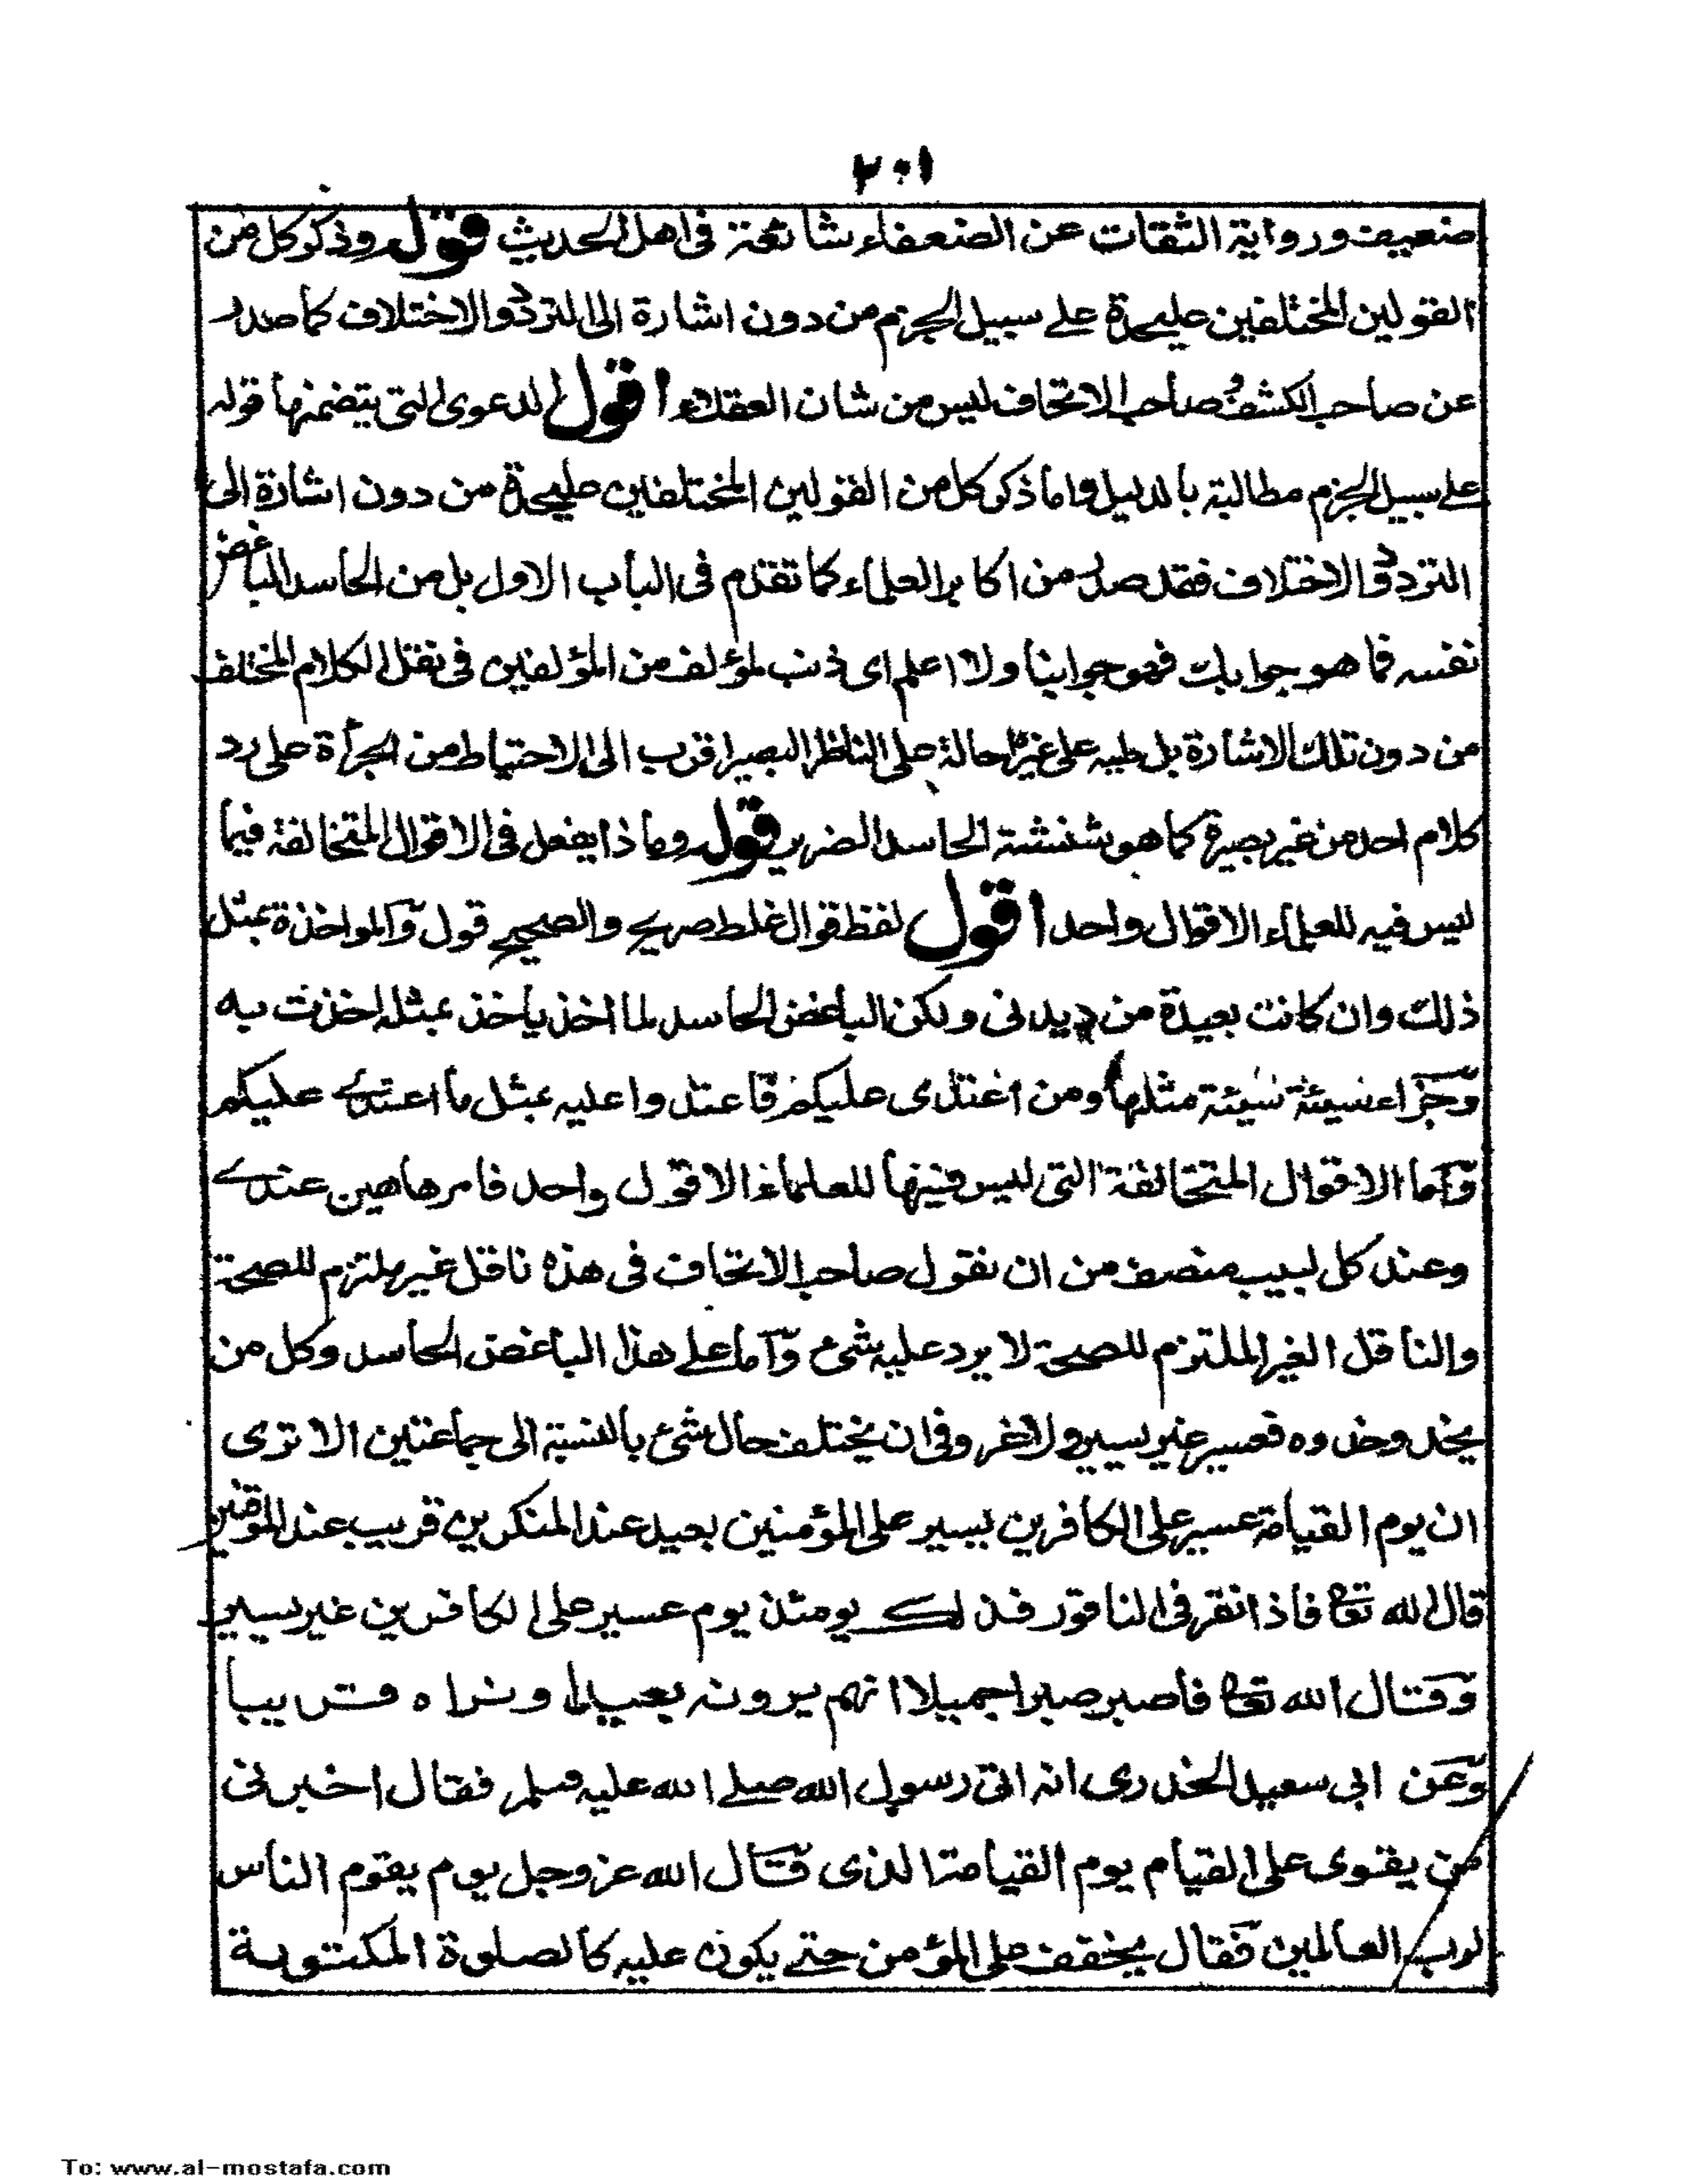 ٢٠١
ضعيف ورواية الثقات عن الضعفاء شائعة فى اهل الحديث قوله وذكر كل من
القولين المختلفين عليحدة على سبيل الجزم من دون اشارة الى التردد والاختلاف كما صدر
عن صاحب الكشف وصاحب الاتحاف ليس من شان العقلاء اقول الدعوى التى يتضمنها قوله
على سبيل الجزم مطالبة بالدليل واما ذكر كل من القولين المختلفين عليحدة من دون اشارة الى
التردد والاختلاف فقد صدر من اكابر العلماء كما تقدم فى الباب الاول بل من الحاسد الباغض
نفسه فما هو جوابك فهو جوابنا ولا اعلم اى ذنب لمؤلف من المؤلفين فى نقل الكلام المختلف
من دون تلك الاشارة بل طيه على غره احالة على الناظر البصير اقرب الى الاحتياط من الجرأة على رد
كلام احد من غير بصيرة كما هو شنشنة الحاسد الضرير قوله وماذا يفعل فى الاقوال المتخالفة فيما
ليس فيه للعلماء الا قوال واحد اقول لفظ قوال غلط صريح والصحيح قول والمواخذة بمثل
ذلك وان كانت بعيدة من ديدنى ولكن الباغض الحاسد لما اخذ ياخذ بمثله اخذت به
وجزاء سيئة سيئة مثلها ومن اعتدى عليكم فاعتدوا عليه بمثل ما اعتدى عليكم
واما الاقوال المتخالفة التى ليس فيها للعلماء الا قول واحد فامرها هين عندى
وعند كل لبيب منصف من ان نقول صاحب الاتحاف فى هذه ناقل غير ملتزم للصحة
والناقل الغير الملتزم للصحة لا يرد عليه شئ واما على هذا الباغض الحاسد وكل من
يحذو حذوه فعسير غير يسير ولا غرو فى ان يختلف حال شئ بالنسبة الى جماعتين الا ترى
ان يوم القيامة عسير على الكافرين يسير على المؤمنين بعيد عند المنكرين قريب عند الموقنين
قال الله تعالى فاذا نقر فى الناقور فذلك يومئذ يوم عسير على الكافرين غير يسير
وقال الله تعالى فاصبر صبرا جميلا انهم يرونه بعيدا ونراه قريبا
وعن ابى سعيد الخدرى انه اتى رسول الله صلى الله عليه وسلم فقال اخبرنى
من يقوى على القيام يوم القيامة الذى قال الله عز وجل يوم يقوم الناس
لرب العالمين فقال يخفف على المؤمن حتى يكون عليه كالصلوة المكتوبة
To: www.al-mostafa.com